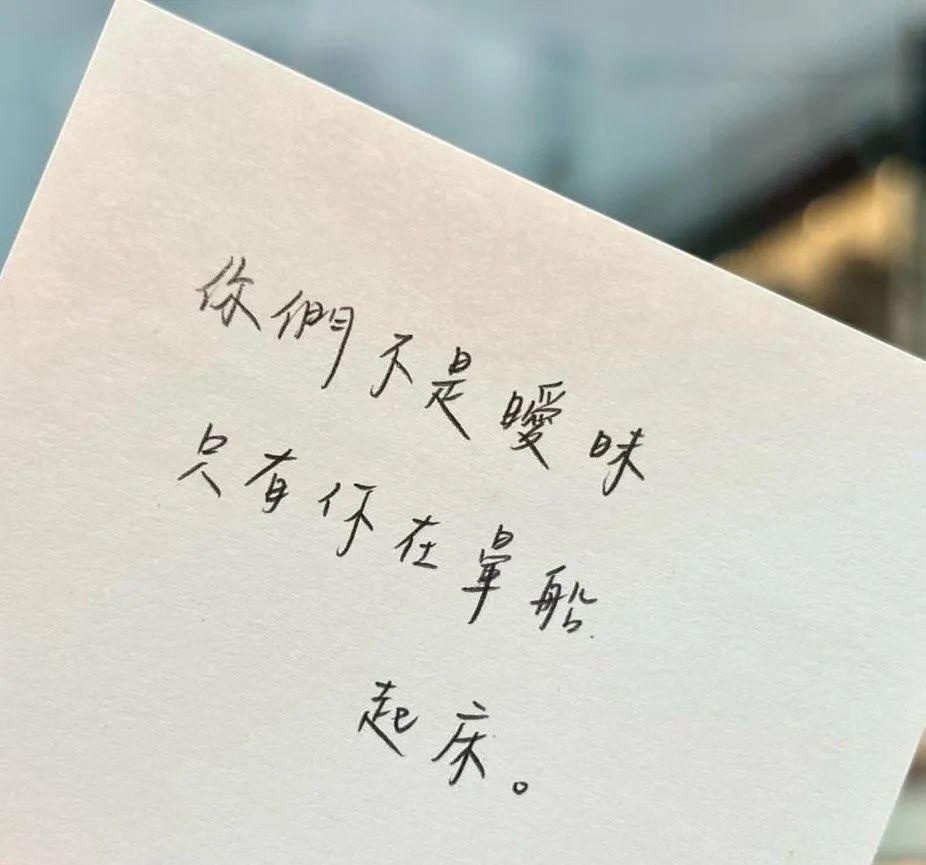 你們不是曖昧
只有你在暈船
起床。